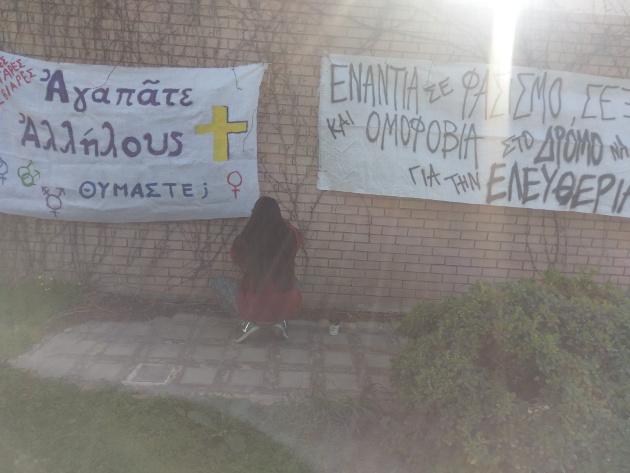 Ἀγαπᾶτε
Ἀλλήλους
ΘΥΜΑΣΤΕ;
ΕΝΑΝΤΙΑ ΣΕ ΦΑΣΙΣΜΟ, ΣΕΞ
ΚΑΙ ΟΜΟΦΟΒΙΑ ΣΤΟ ΔΡΟΜΟ ΝΑ
ΓΙΑ ΤΗΝ ΕΛΕΥΘΕΡΙΑ